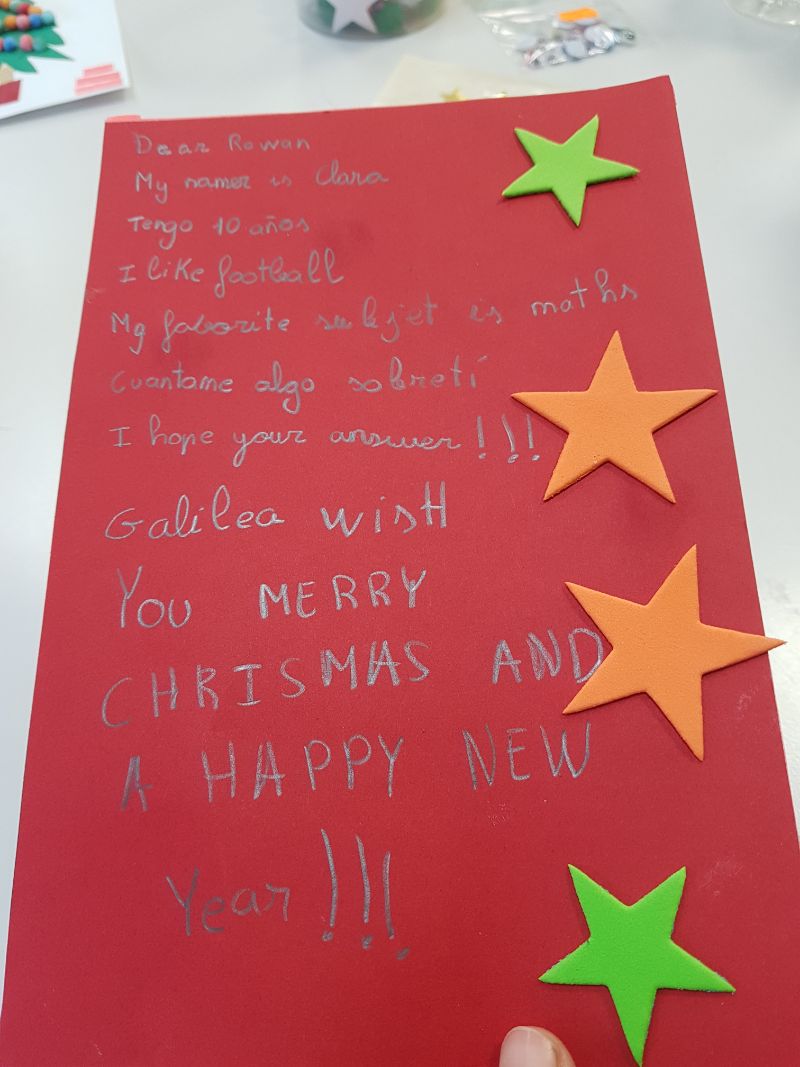 Dear Rowan
My namer is Clara
Tengo 10 años
I like football
My faborite subjet is maths
Cuantame algo sobretí
I hope your answer!!!
Galilea wisH
You MERRY
CHRISMAS AND
A HAPPY NEW
Year!!!